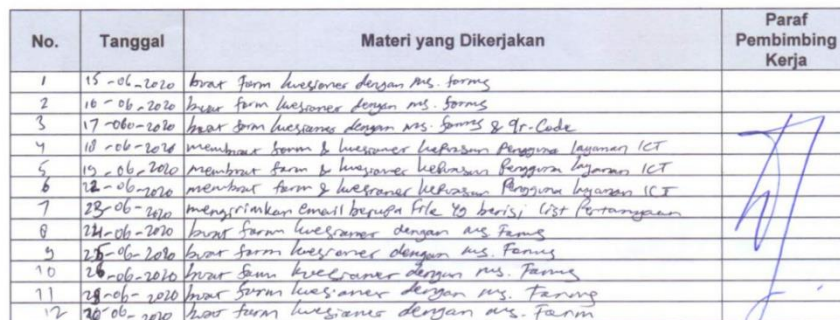 No. Tanggal Materi yang Dikerjakan Paraf Pembimbing Kerja
1 15-06-2020 buat form kuesioner dengan ms. forms
2 16-06-2020 buat form kuesioner dengan ms. forms
3 17-06-2020 buat form kuesioner dengan ms. forms & Qr-Code
4 18-06-2020 membuat form & kuesioner kepuasan pengguna layanan ICT
5 19-06-2020 membuat form & kuesioner kepuasan pengguna layanan ICT
6 22-06-2020 membuat form & kuesioner kepuasan pengguna layanan ICT
7 23-06-2020 mengirimkan email berupa file yg berisi list Pertanyaan
8 24-06-2020 buat form kuesioner dengan ms. Forms
9 25-06-2020 buat form kuesioner dengan ms. Forms
10 26-06-2020 buat form kuesioner dengan ms. Forms
11 29-06-2020 buat form kuesioner dengan ms. Forms
12 30-06-2020 buat form kuesioner dengan ms. Form